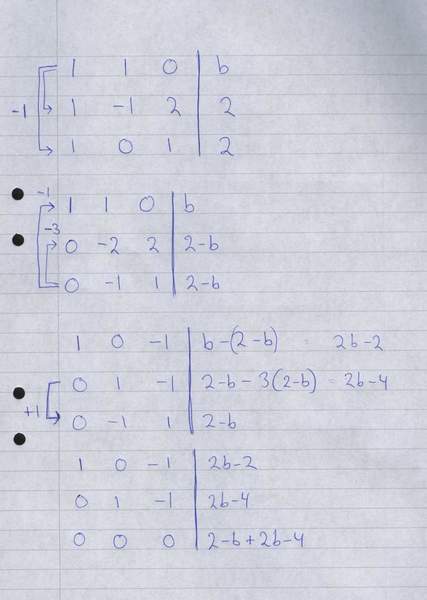 1 1 0 | b
-1 1 -1 2 | 2
1 0 1 | 2
-1
1 1 0 | b
-3
0 -2 2 | 2-b
0 -1 1 | 2-b
1 0 -1 | b-(2-b) = 2b-2
0 1 -1 | 2-b-3(2-b) = 2b-4
+1 0 -1 1 | 2-b
1 0 -1 | 2b-2
0 1 -1 | 2b-4
0 0 0 | 2-b+2b-4